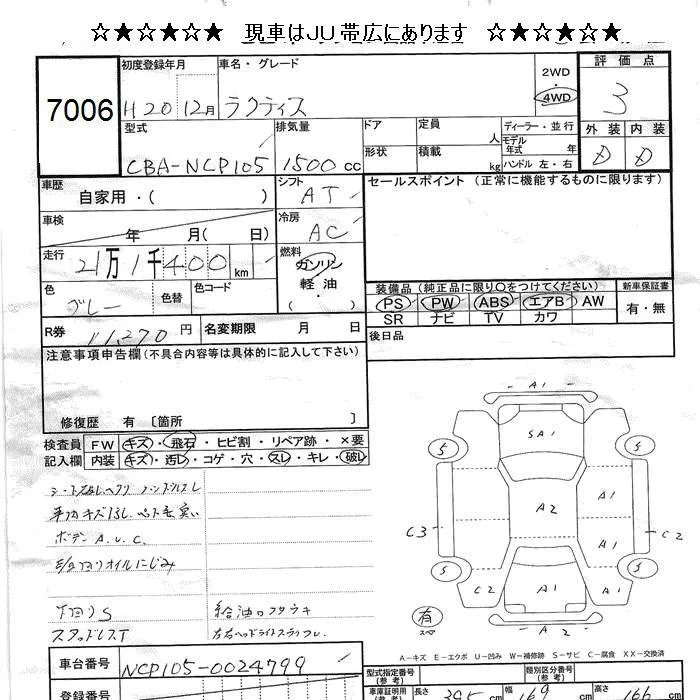 ☆★☆★☆★ 現車はJU帯広にあります ☆★☆★☆★
7006
初度登録年月
H20 12月
車名・グレード
ラクティス
2WD
・
4WD
評価点
3
型式
CBA-NCP105
排気量
1500 cc
ドア
定員
人
形状
積載
kg
ディーラー・並行
モデル年式 年
ハンドル 左・右
外装
D
内装
D
車歴
自家用・( )
シフト
AT
セールスポイント (正常に機能するものに限ります)
車検
年 月( 日)
冷房
AC
走行
21万1千400km
燃料
ガソリン
軽油
( )
色
グレー
色替
色コード
装備品(純正品に限り○をつけてください)
PS PW ABS エアB AW
SR ナビ TV カワ
新車保証書
有・無
R券
11,270円
名変期限 月 日
後日品
注意事項申告欄(不具合内容等は具体的に記入して下さい)
修復歴 有 [箇所 ]
検査員記入欄
FW キズ・飛石・ヒビ割・リペア跡・×要
内装 キズ・汚レ・コゲ・穴・スレ・キレ・破レ
ボデー A.U.C.
下回りS
スタッドレスT
A1
SA1
A2
A1
A1
A1
C2
C2
C3
C2
A2
S
S
S
S
有
スペア
A－キズ E－エクボ U－凹み W－補修跡 S－サビ C－腐食 XX－交換済
車台番号
NCP105-0024799
登録番号
型式指定番号(参考)
類別区分番号(参考)
車庫証明用(参考)
長さ 395 cm
幅 169 cm
高さ 166 cm